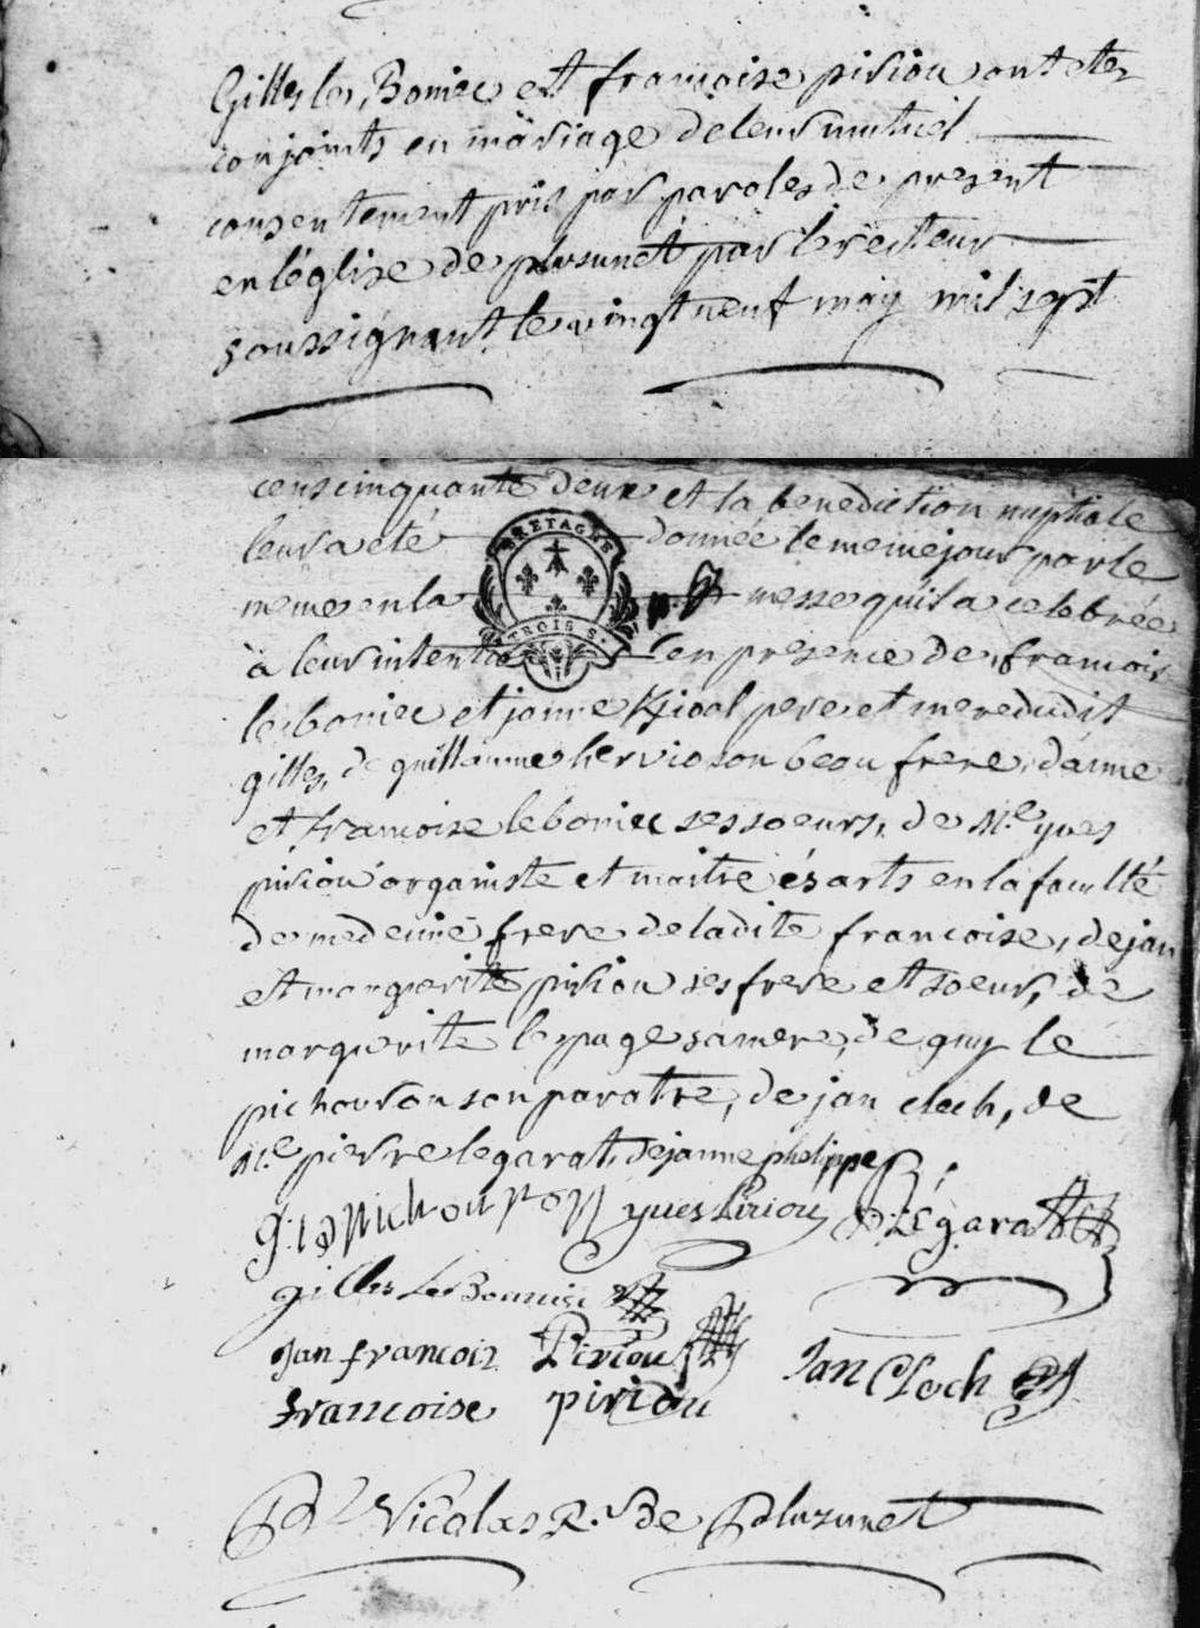 Gilles le Boniec et francoise piriou ont etez
conjoints en mariage de leur mutuel
consentement pris par paroles de present
en léglise de plusunet par le recteur
soussignant le vingt neuf may mil sept
cens cinquante deux et la benediction nuptiale
leur a eté donnée le meme jour par le
meme en la messe quil a celebrée
BRETAGNE
TROIS S.
à leur intention en presence de francois
le boniec et janne Kjval pere et mere dudit
gilles, de guillaume hervio son beau frere, d'anne
et francoise le boniec ses soeurs, de Me yves
piriou organiste et maitre és arts en la faculté
de medecine frere de ladite francoise, de jan
et margueritte piriou ses frere et soeur, de
marguerite le page sa mere, de guy le
pichouron son paratre, de jan cloch, de
Me pierre legarat, de janne phelippe
g: le pichouron yves Piriou P: Légarat
gilles Le Bonniec
Jan francois Piriou Jan Cloch
francoise piriou
Nicolas R. de Pluzunet